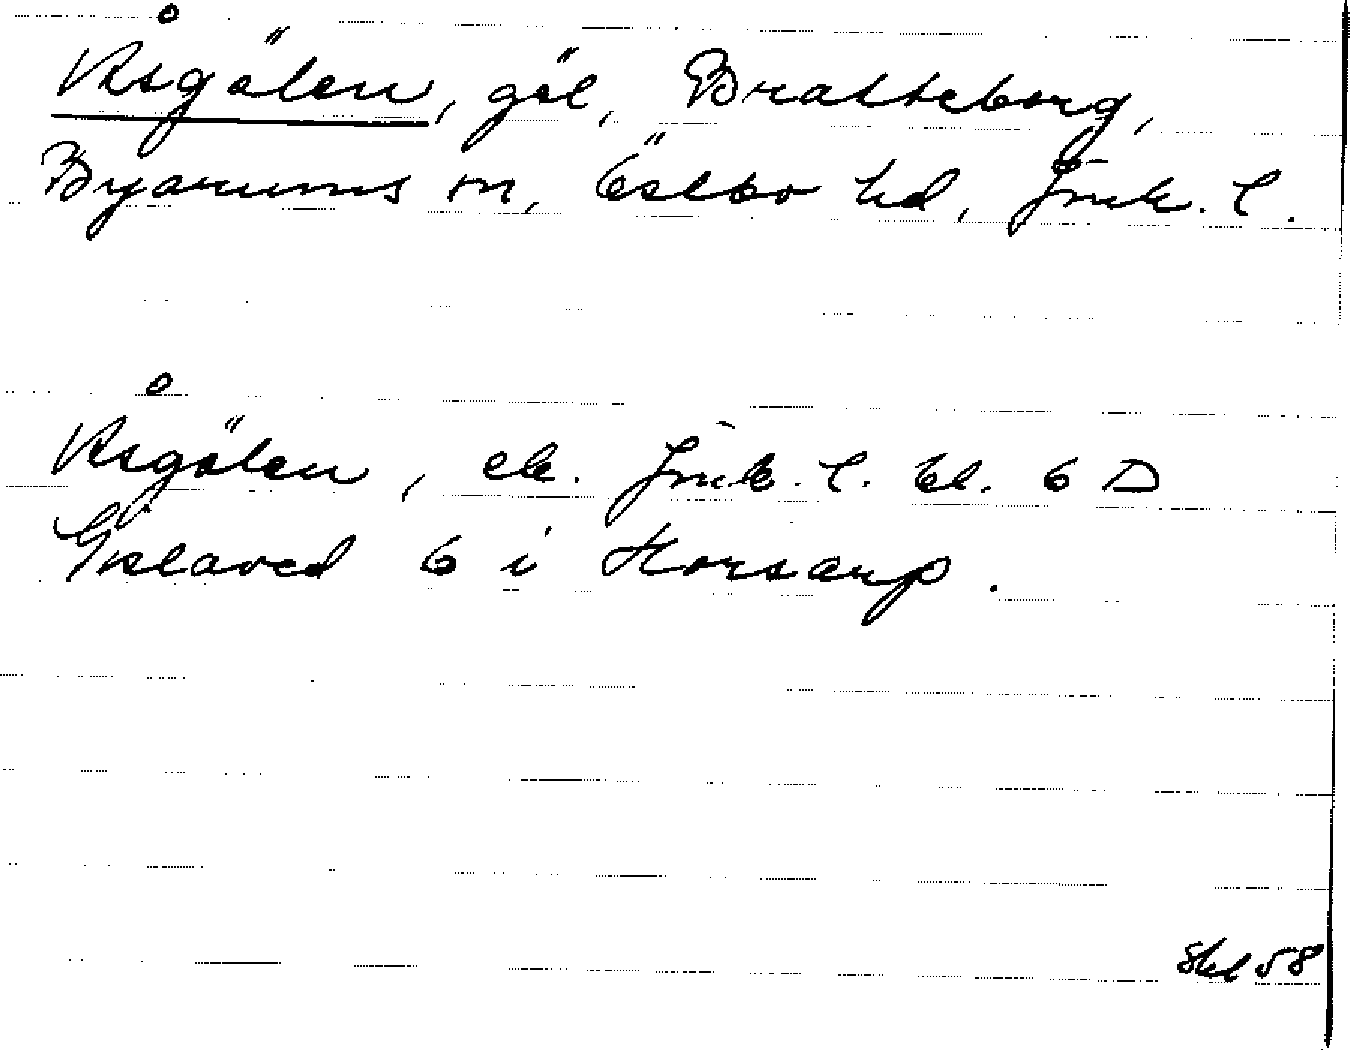 Åsgölen, göl, Bratteborg,
Byarums sn, Östbo hd, Jmk. l.
Åsgölen, ek. Jmk. l. bl. 6 D
Gislaved 6 i Horsarp.
Skl 58